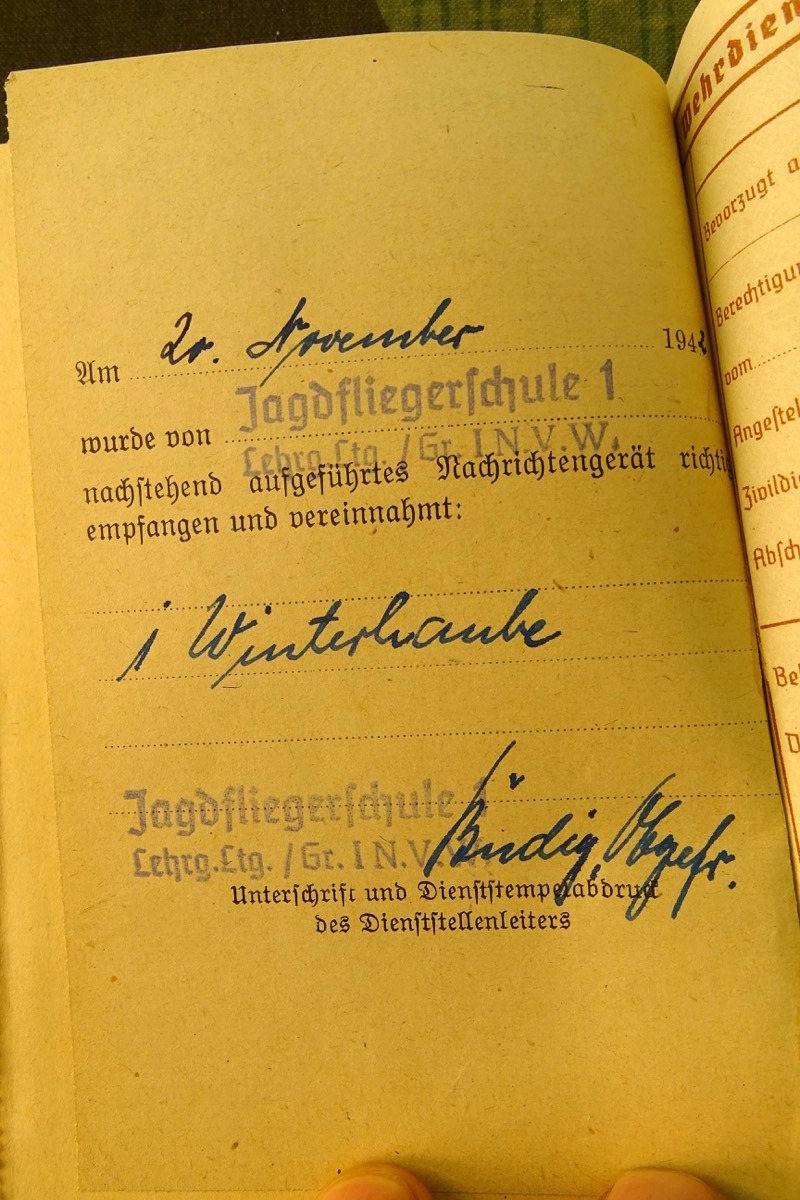 Am 20. November 194
Jagdfliegerschule 1
wurde von
Lehrg.Ltg. /Gr. I N.V.W.
nachstehend aufgeführtes Nachrichtengerät richti
empfangen und vereinnahmt:
1 Winterhaube
Jagdfliegerschule 1
Lehrg.Ltg. /Gr. I N.V.
Obgefr.
Unterschrift und Dienststempelabdruck
des Dienststellenleiters
Wehrdien
Bevorzugt a
Berechtigun
vom
Angestel
Zivildie
Absch
Be
D